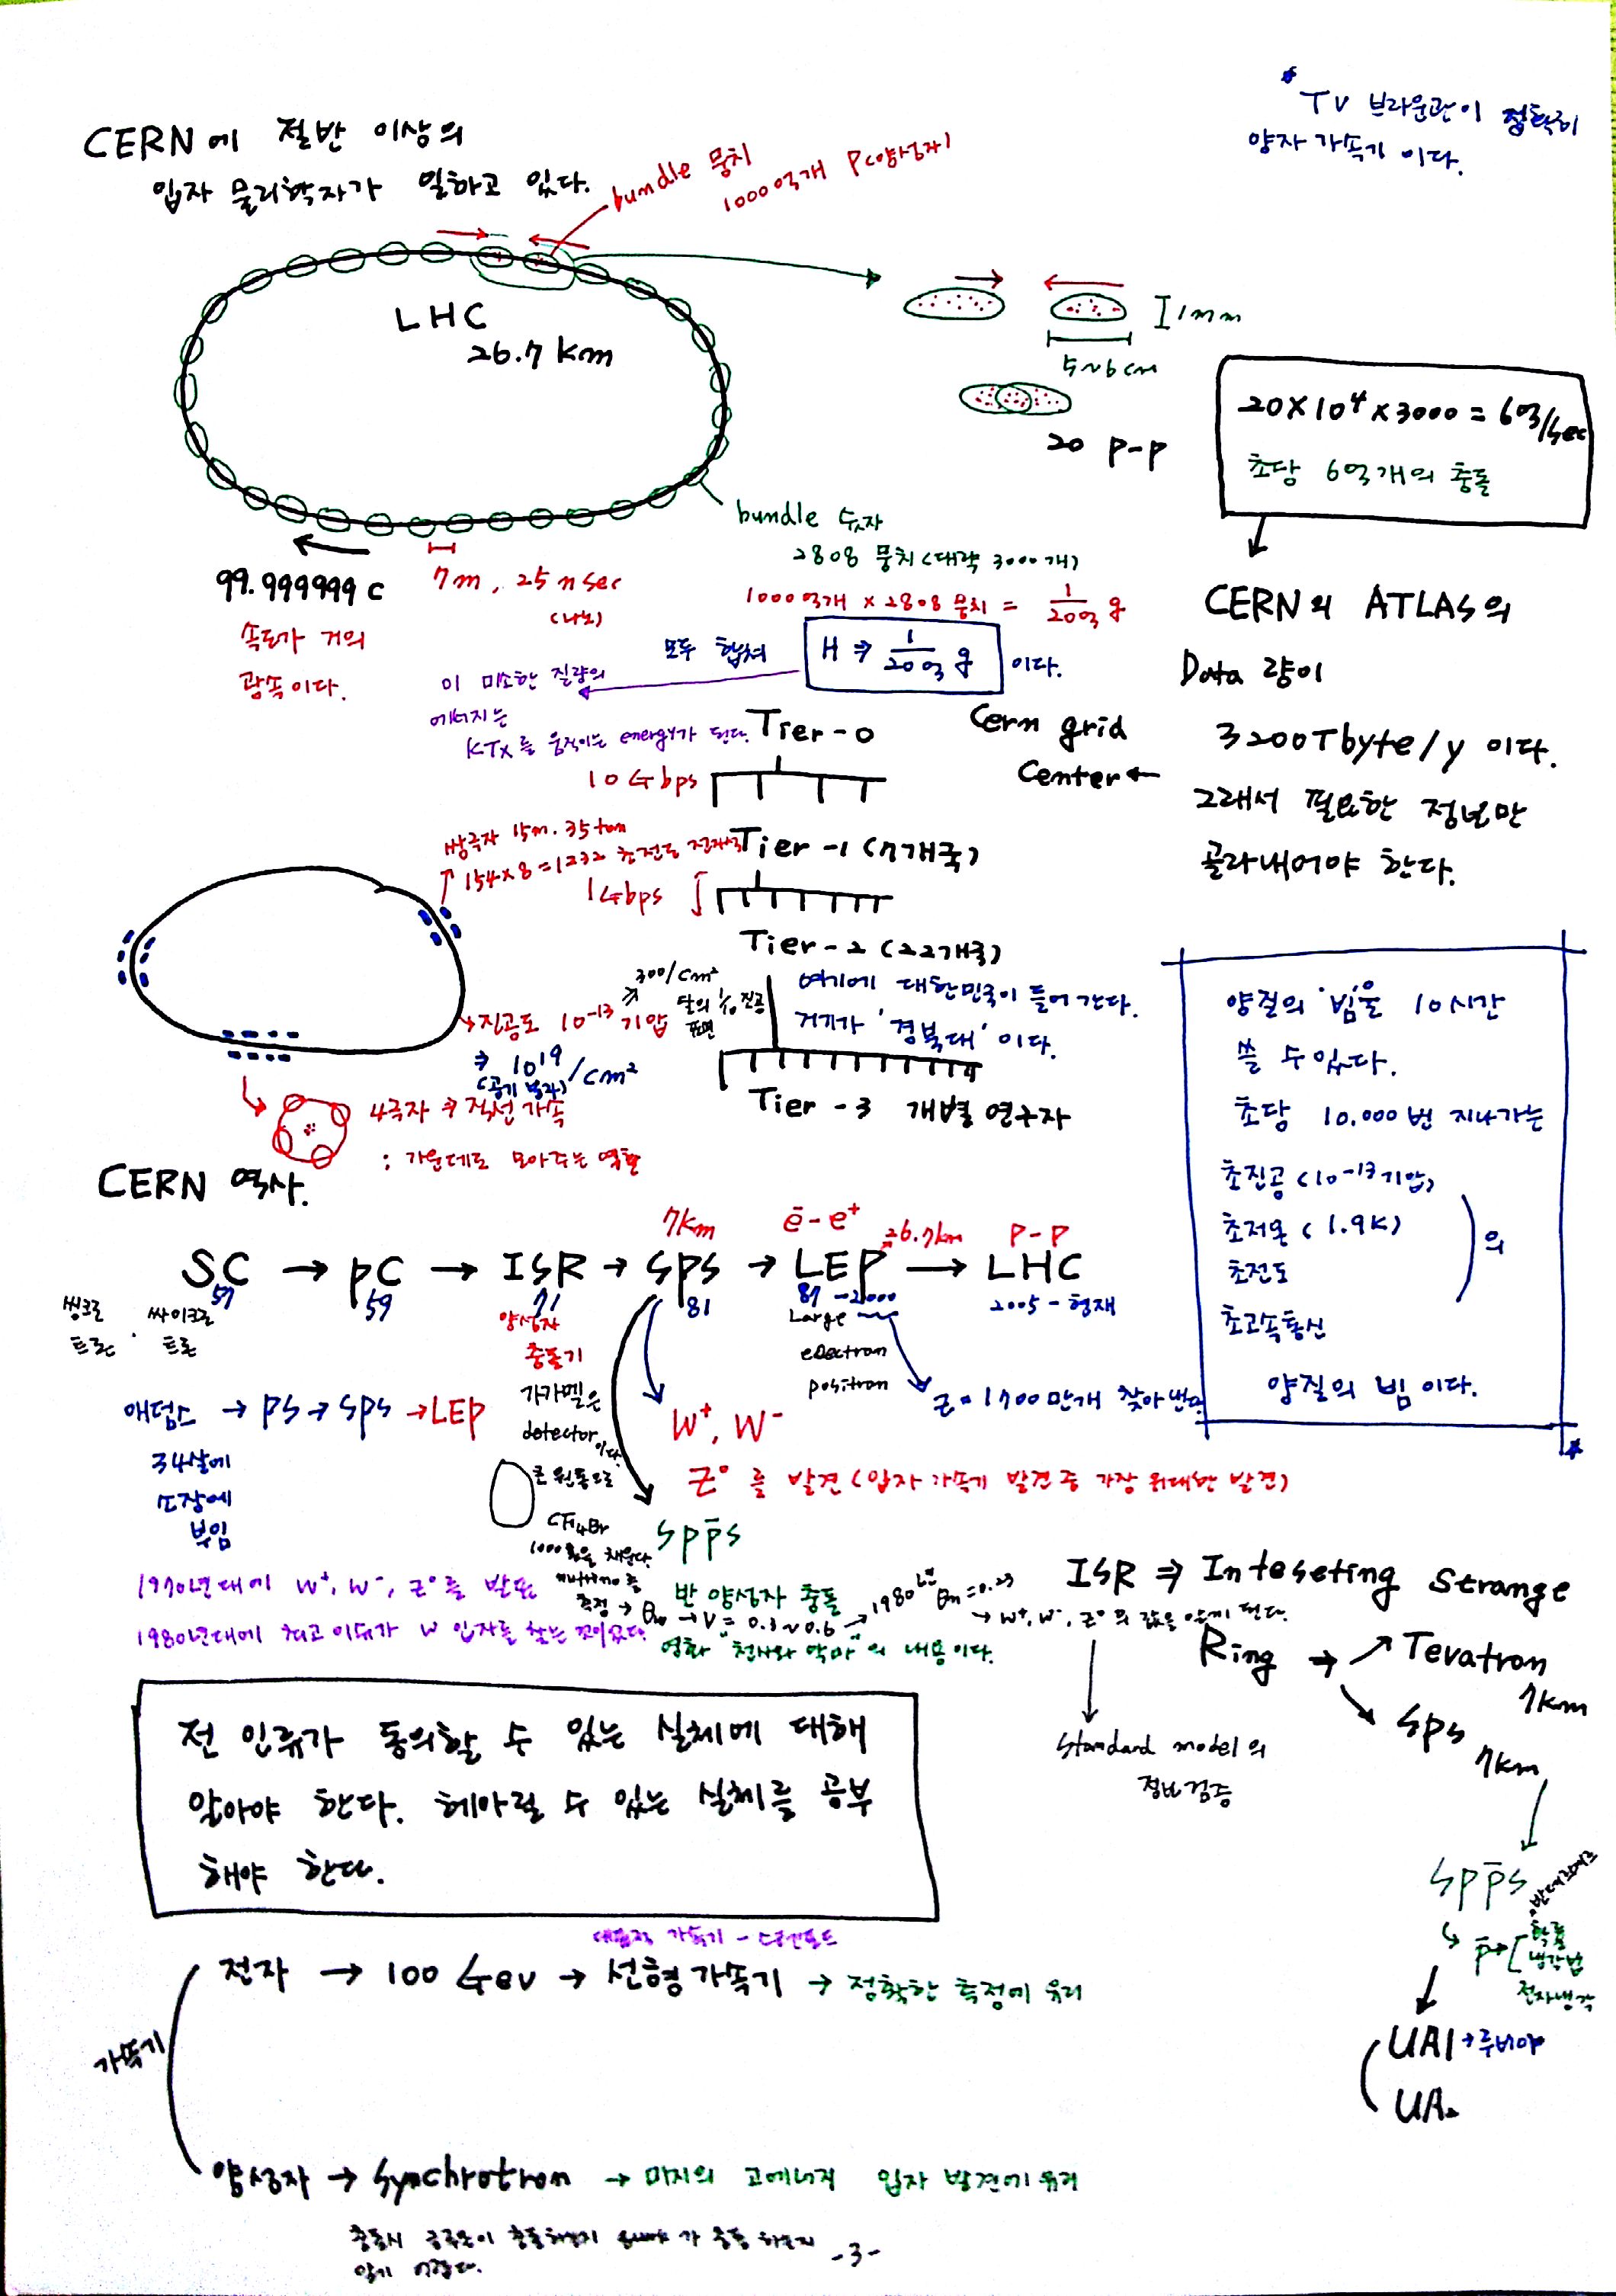 * TV 브라운관이 정확히
양자 가속기 이다.
CERN에 절반 이상의
입자 물리학자가 일하고 있다.
bundle 뭉치
1000억개 P(양성자)
LHC
26.7 km
1mm
5~6cm
20 P-P
20×10⁴×3000 = 6억/sec
초당 6억개의 충돌
bundle 숫자
2808 뭉치(대략 3000개)
1000억개 × 2808 뭉치 = 1/20억 g
99.999999 c
7m, 25 nsec
(나노)
속도가 거의
광속이다.
모두 합쳐
H ⇒ 1/20억 g 이다.
이 미소한 질량의
에너지는
KTX를 움직이는 energy가 된다.
CERN의 ATLAS의
Data 량이
3200Tbyte/y 이다.
그래서 필요한 정보만
골라내어야 한다.
Cern grid
Center ←
Tier-0
10 Gbps
Tier-1 (7개국)
1Gbps
Tier-2 (22개국)
여기에 대한민국이 들어간다.
거기가 '경북대' 이다.
Tier-3 개별 연구자
쌍극자 15m. 35ton
154×8=1232 초전도
→진공도 10⁻¹³ 기압
300/cm²
달의 1/10 진공
표면
⇒ 10¹⁹/cm²
(공기 분자)
4극자 ⇒ 직선 가속
: 가운데로 모아주는 역할
양질의 '빔'을 10시간
쓸 수 있다.
초당 10,000번 지나가는
초진공 (10⁻¹³기압)
초저온 (1.9K)
초전도
초고속통신
의
양질의 빔 이다.
CERN 역사.
7km
e⁻-e⁺
26.7km
P-P
SC → PC → ISR → SPS → LEP → LHC
57
59
71
81
89-2000
2005-현재
씽크로
트론
싸이크로
트론
양성자
충돌기
가가멜은
detector이다.
큰 원통으로
CF₄Br
1000톤을 채운다.
Large
electron
positron
Z⁰ 1700만개 찾아낸다.
애덤스 → PS → SPS → LEP
34살에
소장에
부임
W⁺, W⁻
Z⁰를 발견(입자 가속기 발견 중 가장 위대한 발견)
Spp̄s
반 양성자 충돌
영화 "천사와 악마"의 내용이다.
1970년대에 W⁺, W⁻, Z⁰를 발표
1980년대에 최고 이슈가 W 입자를 찾는 것이었다.
측정 → θw → V = 0.3~0.6 → 1980년 θw=0.23
→ W⁺, W⁻, Z⁰의 값을 알게 된다.
Standard model의
정밀검증
ISR ⇒ Inteseting Strange
Ring →
Tevatron
7km
SPS
7km
Spp̄s
p̄→
확률
냉각법
전자냉각
UA1→루비아
UA2
전 인류가 동의할 수 있는 실체에 대해
알아야 한다. 헤아릴 수 있는 실체를 공부
해야 한다.
가속기
대표적 가속기 - 스탠포드
전자 → 100 Gev → 선형가속기 → 정확한 측정에 유리
양성자 → Synchrotron → 미지의 고에너지 입자 발견에 유리
알기 어렵다.
-3-